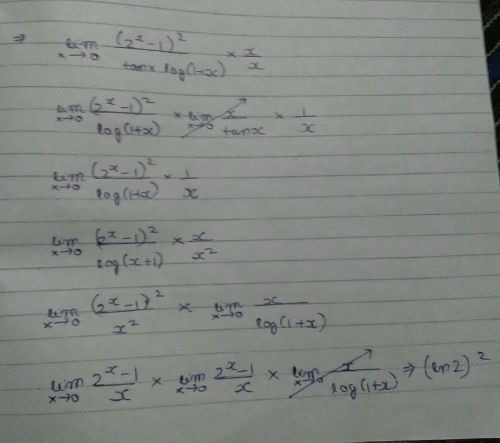 ⇒ lim x→0 (2^x-1)^2 / tanx log(1+x) × x/x
lim x→0 (2^x-1)^2 / log(1+x) × lim x→0 x/tanx × 1/x
lim x→0 (2^x-1)^2 / log(1+x) × 1/x
lim x→0 (2^x-1)^2 / log(x+1) × x/x^2
lim x→0 (2^x-1)^2 / x^2 × lim x→0 x / log(1+x)
lim x→0 2^x-1 / x × lim x→0 2^x-1 / x × lim x→0 x / log(1+x) ⇒ (ln2)^2